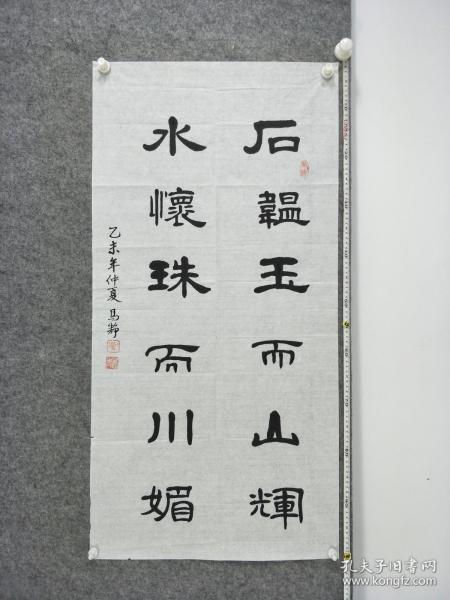 石韞玉而山輝
水懷珠而川媚
乙未年仲夏馬靜
孔夫子旧书网
www.kongfz.com